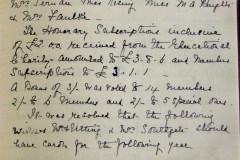 Mrs Seman Miss Rising Miss M A Knights
& Mrs Faulke
The Honary Subscriptions inclusive
of £2.0.0 received from the Educational
Charity amounted to £3.8.6 and Members
Subscriptions to £3.1.1
A Bonus of 3/- was voted to 14 members
2/- to 6 Members and 2/- to 5 special ones.
It was resolved that the following
Widows Mrs Utting & Mrs Southgate should
have cards for the following year